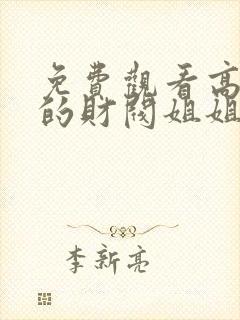 免費觀看高
的財閥姐姐
李新亮